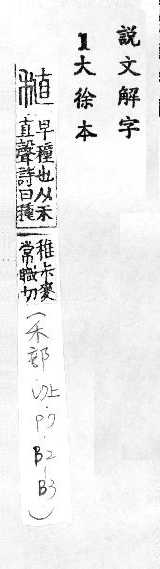 說文解字
1大徐本
稙
早種也从禾
直聲詩曰稙
稚尗麥
常職切
(禾部.以上.P7.B2-B3)